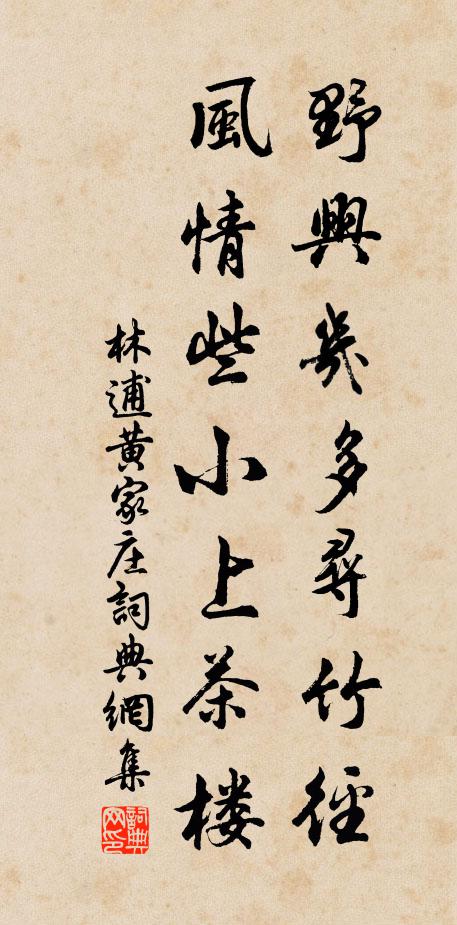 野興幾多尋竹徑
風情些小上茶楼
林逋黄家庄詞典網集
詞典網印